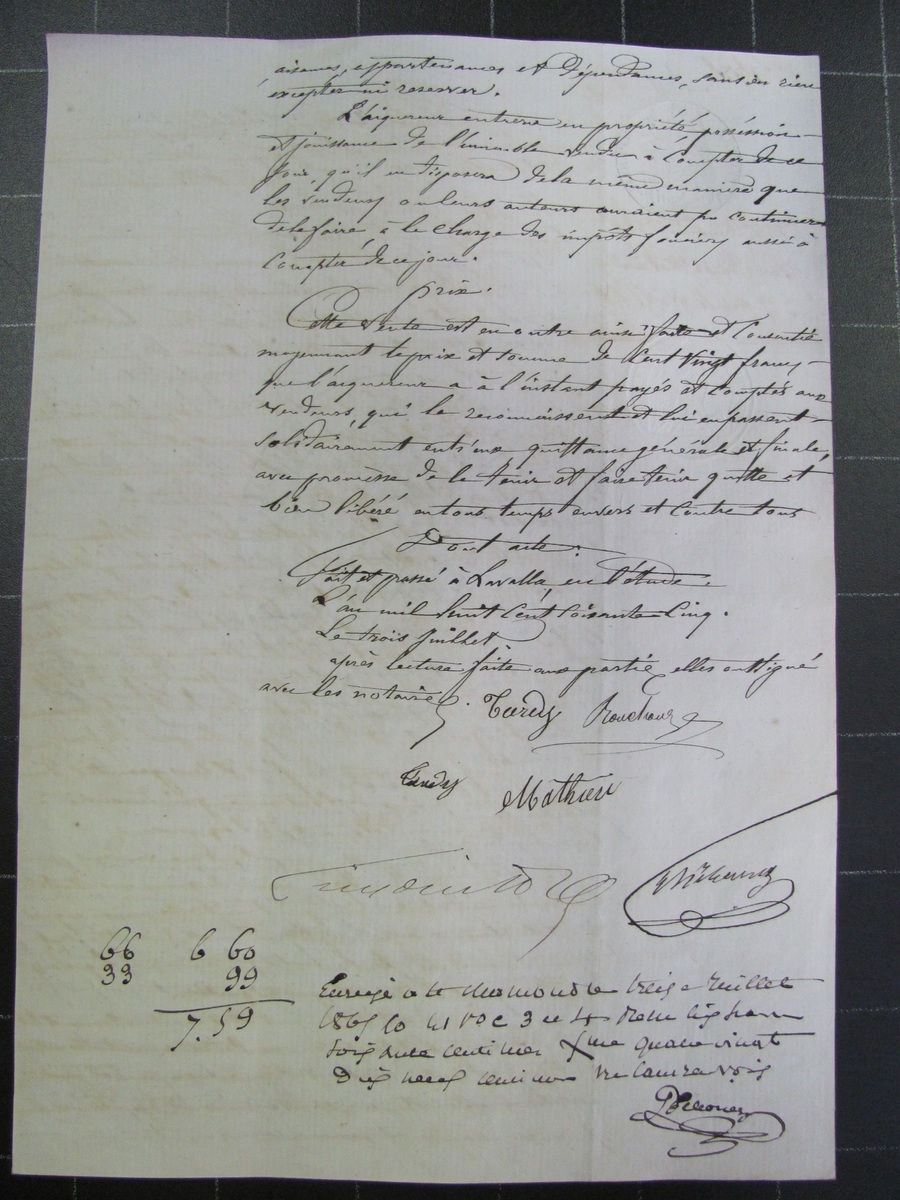 aisances, appartenances et dépendances, sans en rien
excepter ni reserver.
L'aiquereur entrera en propriété possession
et jouissance de l'immeuble vendu à Compter de ce
jour, qu'il en disposera de la même manière que
les vendeurs ou leurs auteurs auraient pu continuer
de le faire à la charge des impôts fonciers aussi à
Compter de ce jour.
Prix.
Cette vente est en outre ainsi faite et Consentie
moyennant le prix et somme de Cent Vingt francs
que l'aiquereur a à l'instant payés et Comptés aux
vendeurs, qui le reconnaissent et lui en passent
solidairement entr'eux quittance générale et finale,
avec promesse de le tenir et faire tenir quitte et
bien libéré en tous temps envers et Contre tous
Dont acte.
Fait et passé à Lavalla, en l'étude.
L'an mil huit Cent soixante Cinq.
Le trois Juillet
après lecture faite aux parties, elles ont signé
avec les notaires. Tardy
Tardy Mathieu
66 6 60
33 99
7.59
treize Juillet
1865 fo
soixante centimes quatre vingt
Dix neuf centimes